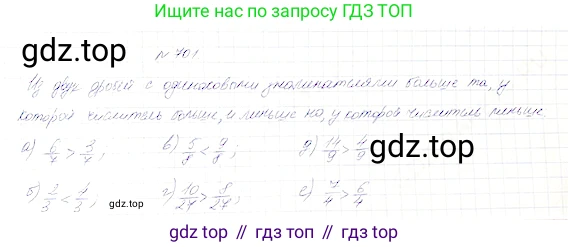 Ищите нас по запросу ГДЗ ТОП
gdz.top
№ 701
Из двух дробей с одинаковыми знаменателями больше та, у
которой числитель больше, и меньше но, у которой числитель меньше.
а) 6/7 > 3/7; в) 5/8 < 9/8; д) 14/9 > 4/9
gdz.top
б) 2/3 < 4/3; г) 10/27 > 8/27; е) 7/4 > 6/4
gdz.top // гдз топ // гдз.топ